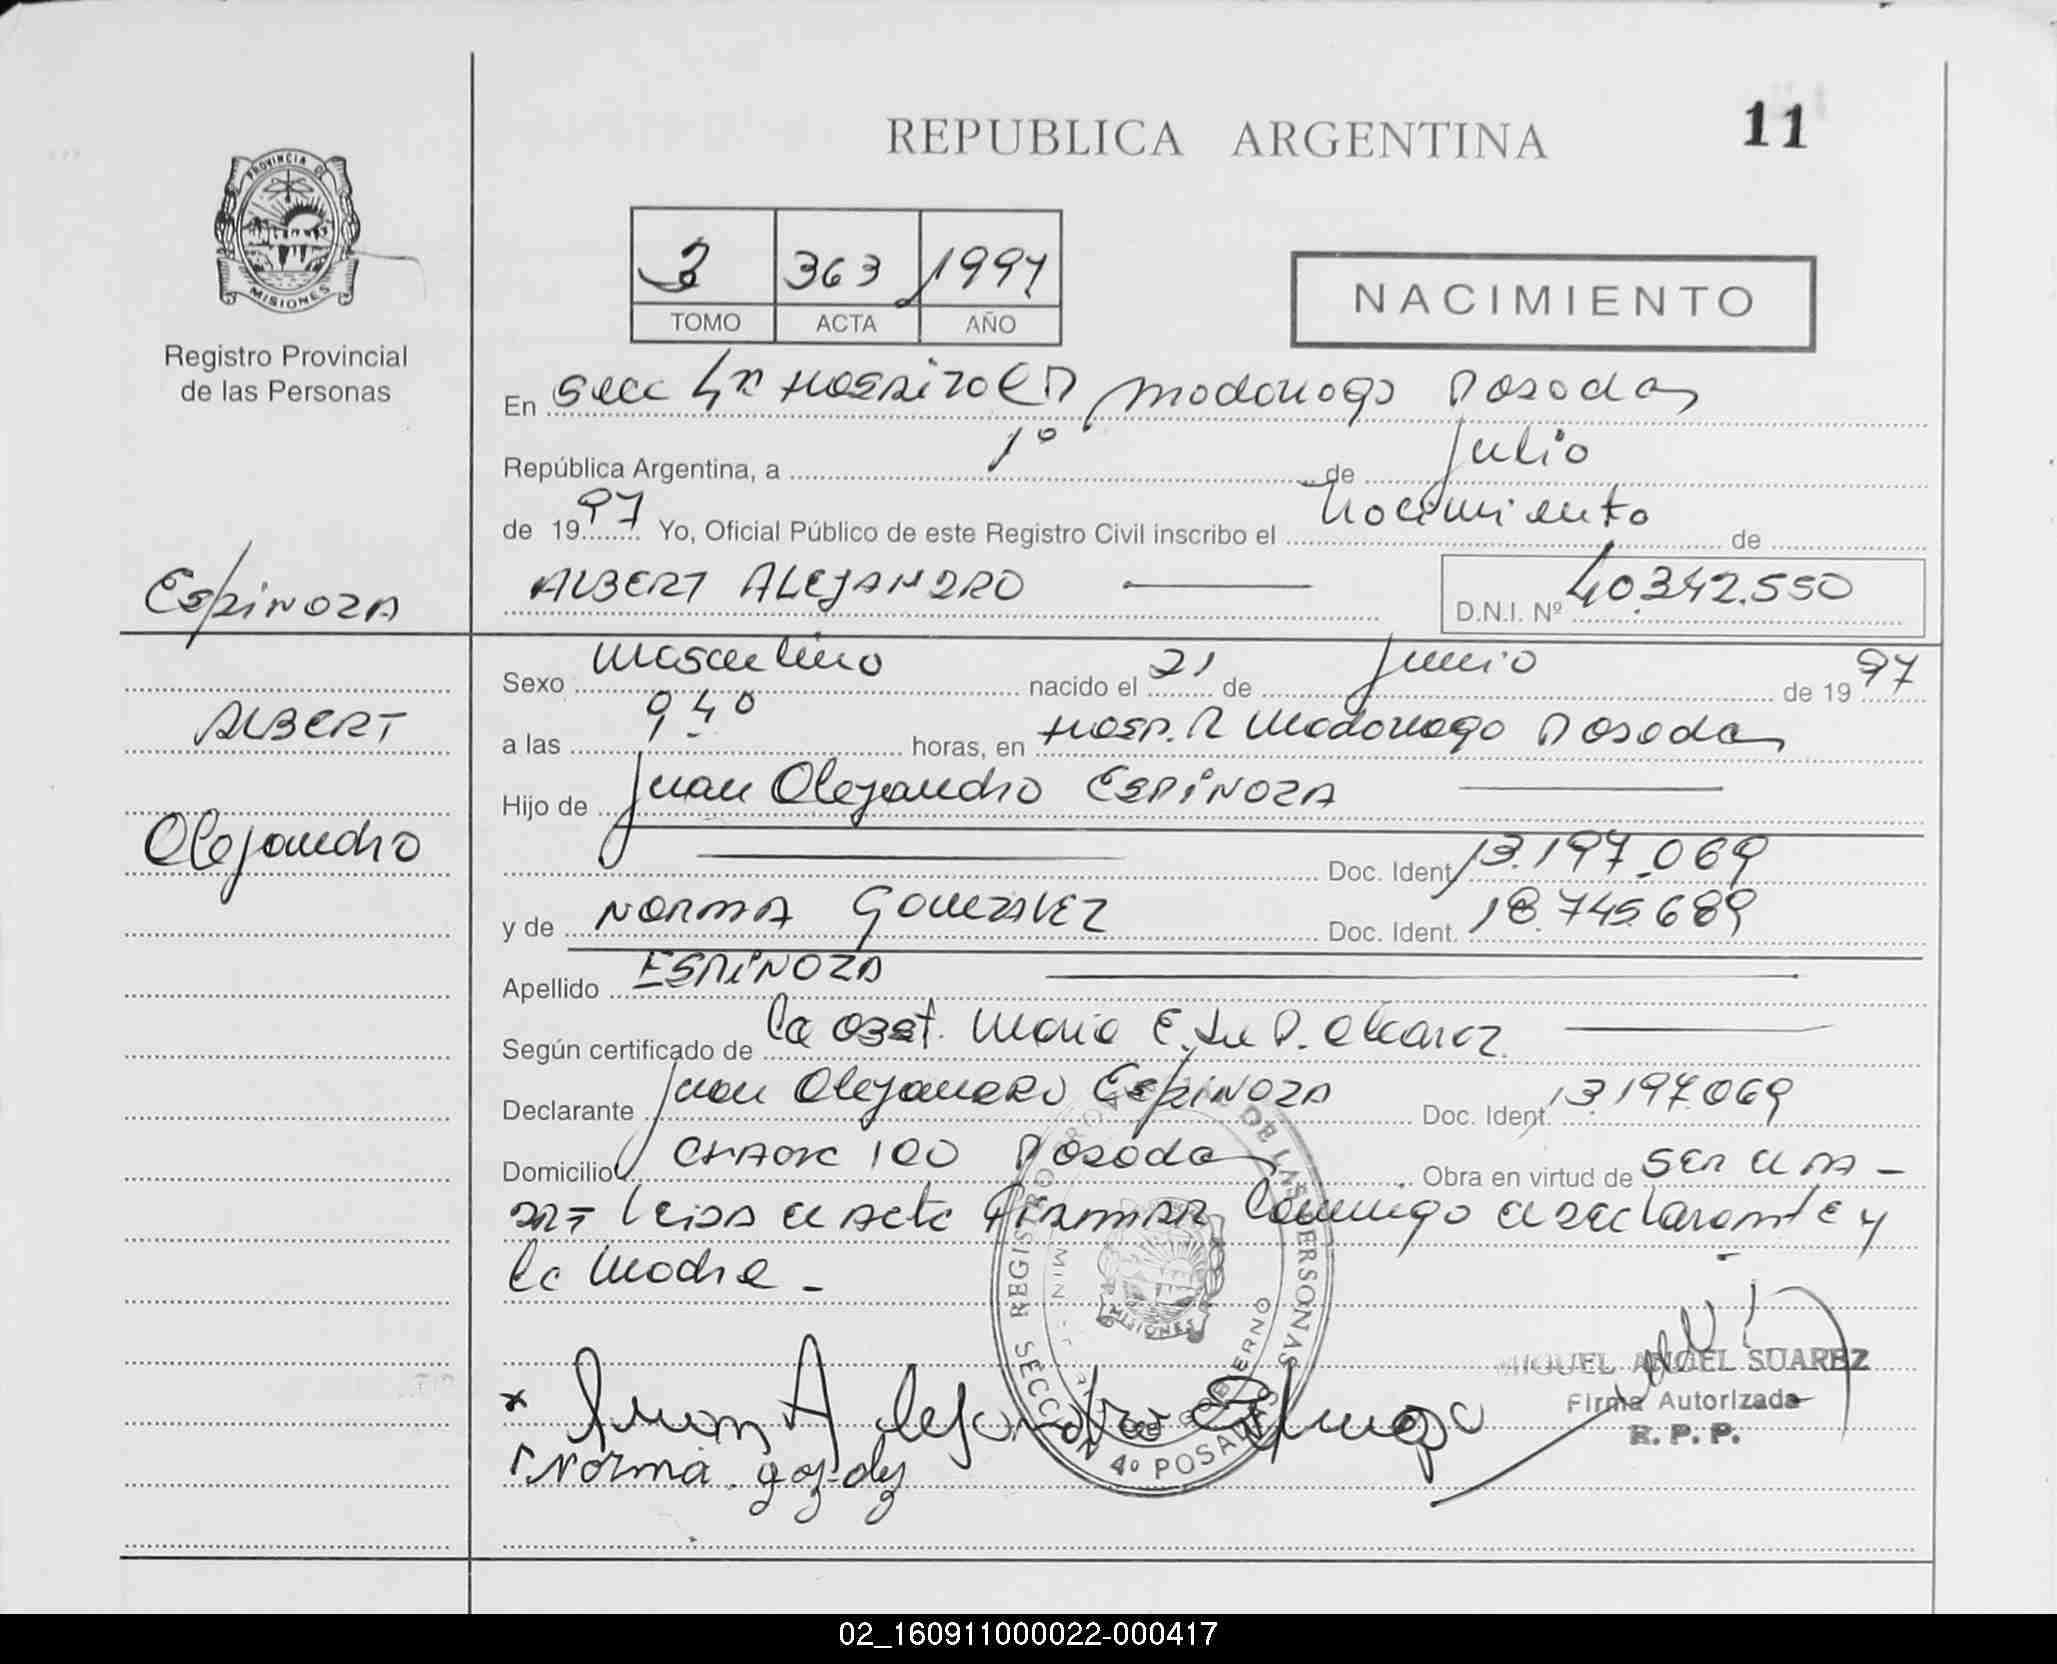 11
REPUBLICA ARGENTINA
PROVINCIA DE
MISIONES
Registro Provincial
de las Personas
3 363 1997
TOMO ACTA AÑO
NACIMIENTO
En Secc 4ª Hospital R Madariaga Posadas
República Argentina, a 1º de Julio
de 1997 Yo, Oficial Público de este Registro Civil inscribo el Nacimiento de
Espinoza
ALBERT ALEJANDRO
D.N.I. Nº 40.342.550
Sexo Masculino nacido el 21 de Junio de 1997
ALBERT
a las 9,40 horas, en Hosp. R Madariaga Posadas
Hijo de Juan Alejandro ESPINOZA
Alejandro
Doc. Ident. 13.197.069
y de NORMA GONZALEZ Doc. Ident. 18.745.689
Apellido ESPINOZA
Según certificado de la obst. Maria E. de Alcaraz
Declarante Juan Alejandro Espinoza Doc. Ident. 13.197.069
Domicilio 100 Posadas Obra en virtud de SER EL PA-
DRE Leida el Acta FIRMAN Conmigo el declarante y
la Madre -
REGISTRO PROVINCIAL DE LAS PERSONAS
MISIONES
SECCION 4º POSADAS
MIGUEL ANGEL SUAREZ
Firma Autorizada
R. P. P.
x Juan Alejandro Espinoza
Norma
02_160911000022-000417